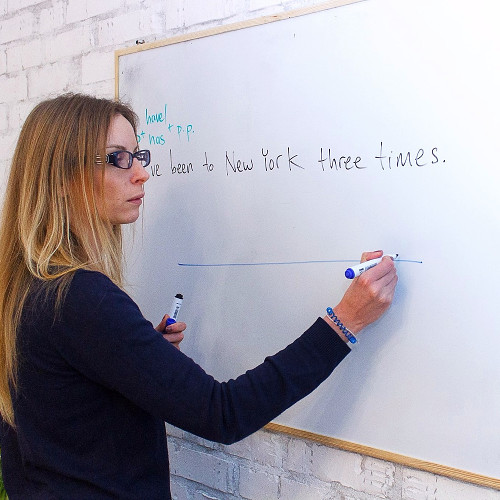 have/
has + p.p.
've been to New York three times.